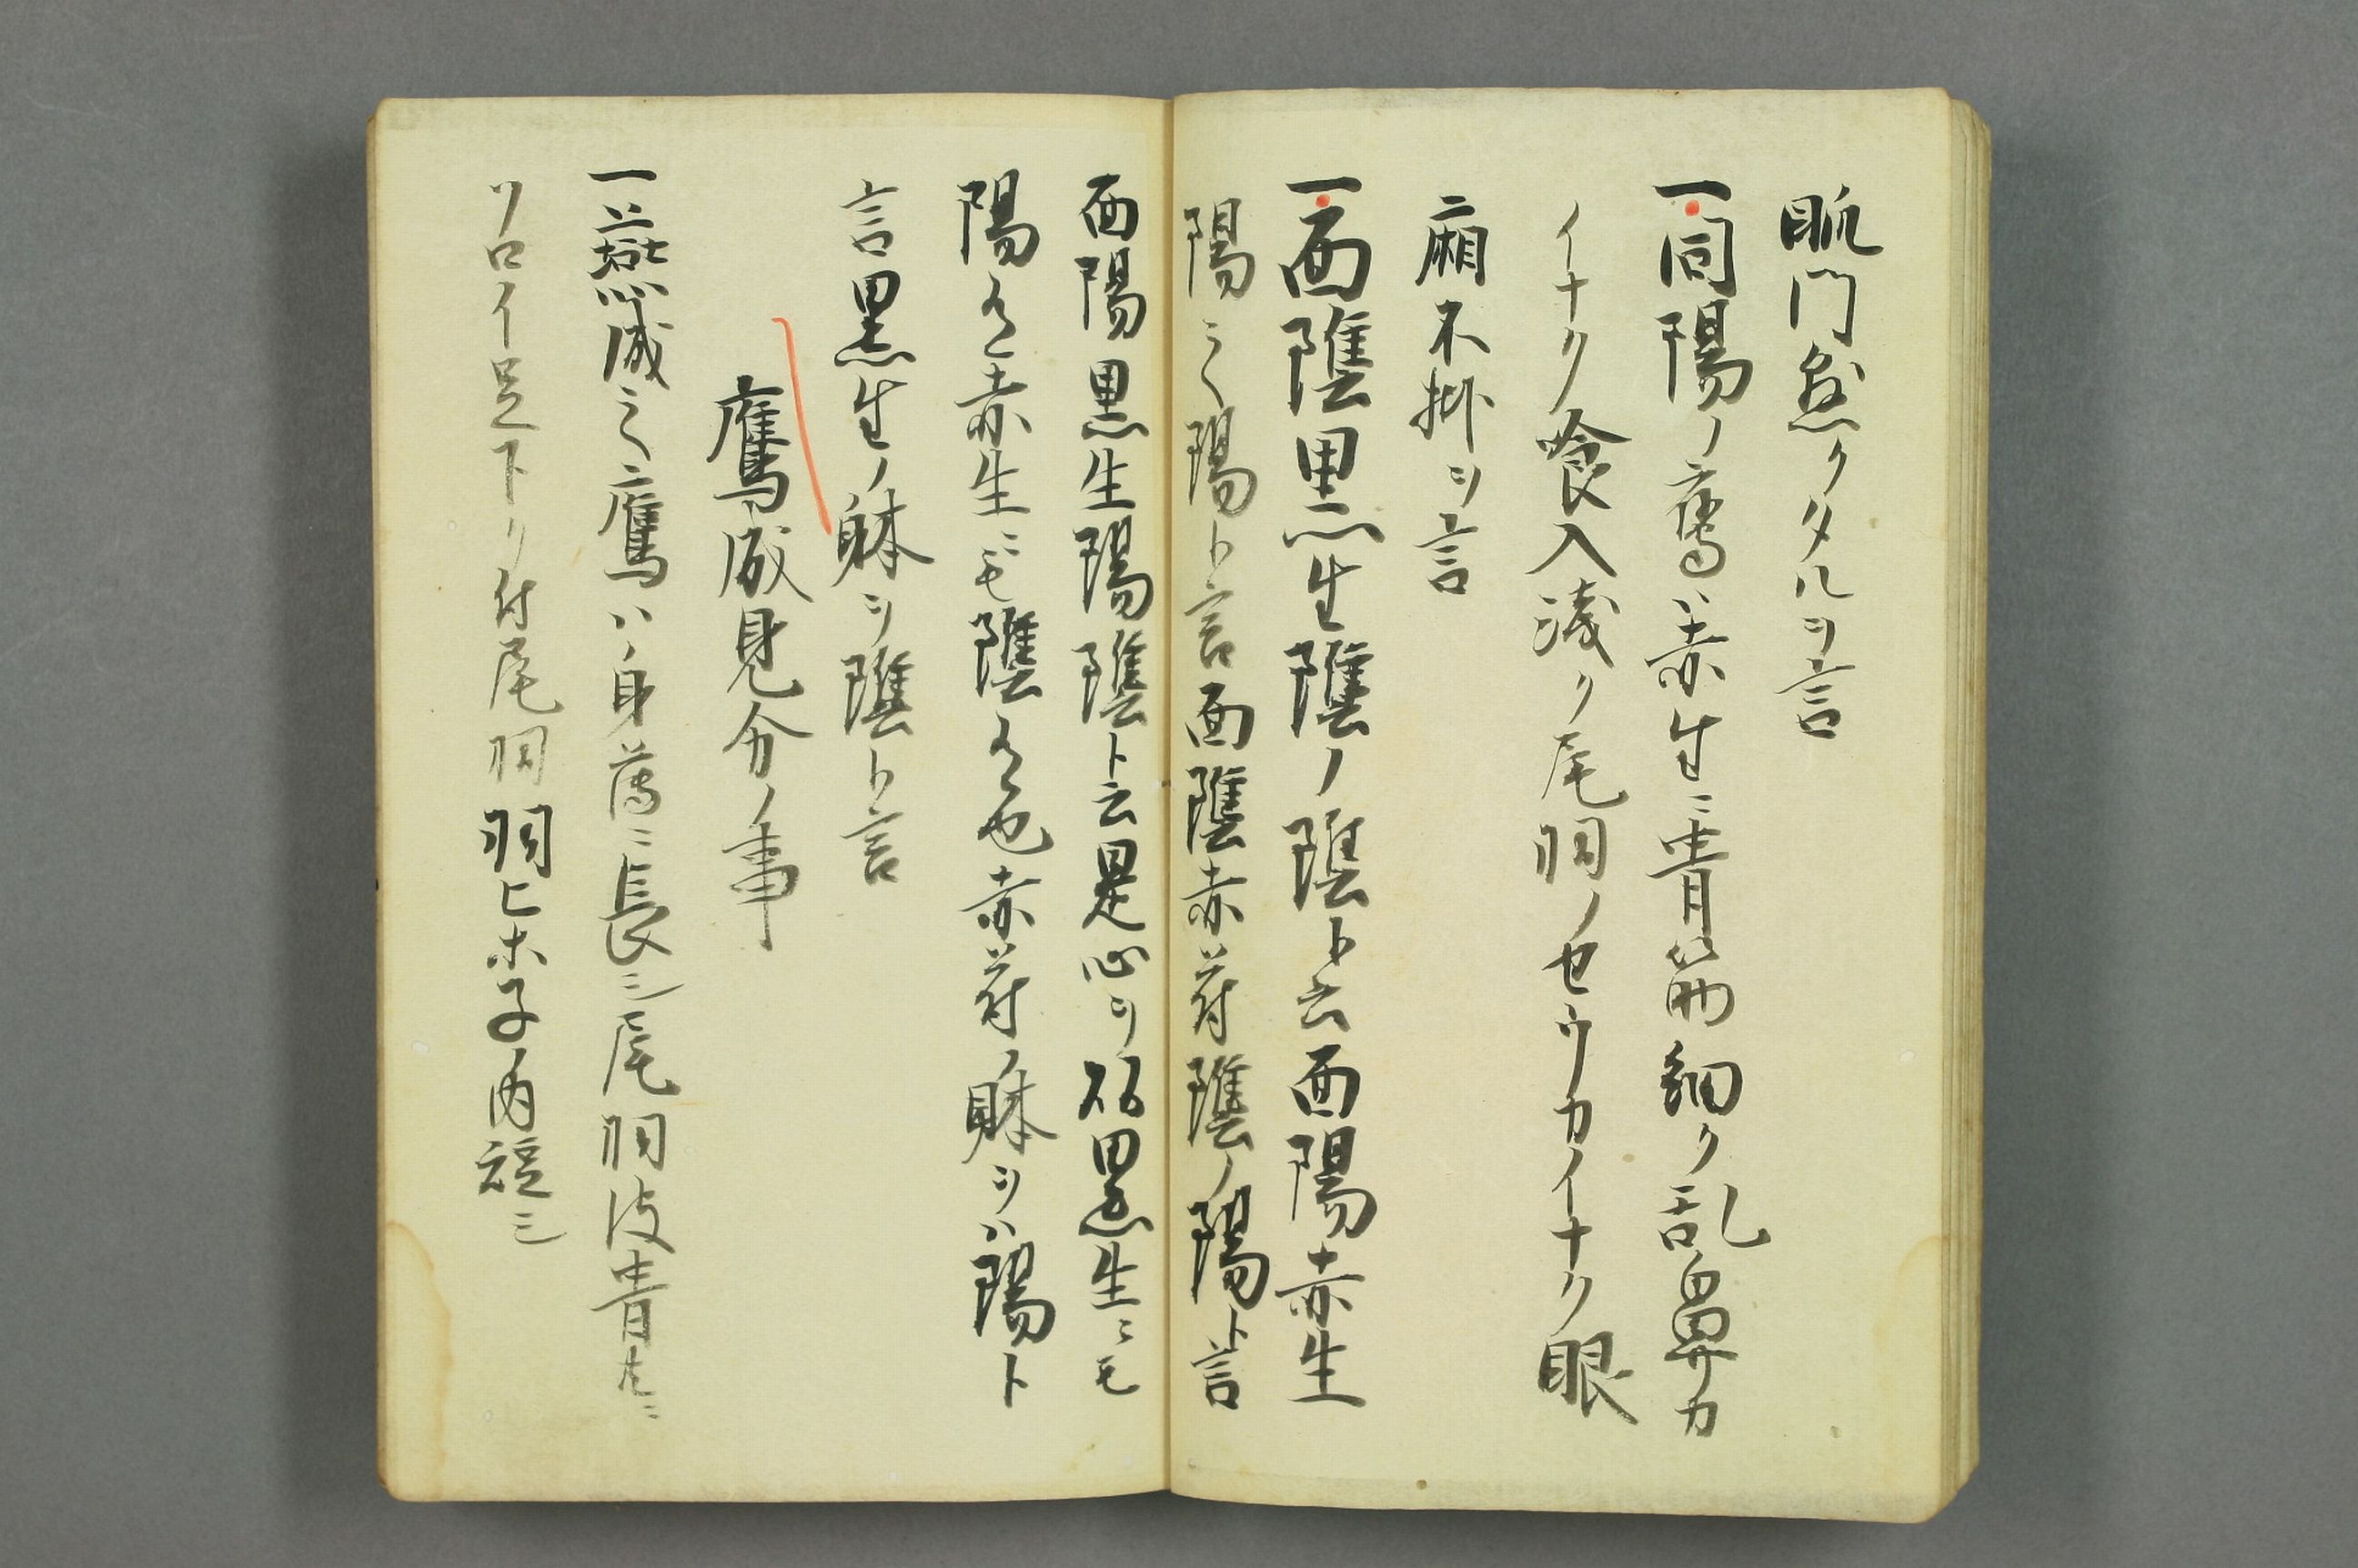 肛門急クタルヲ言
一同陽ノ鷹ハ赤生ニ青筋細ク乱鼻カ
イナク喰入浅ク尾羽ノセウカイナク眼
廂不掛ヲ言
一面陰黒生陰ノ陰ト云面陽赤生
陽ニ〆陽ト言面陰赤符陰ノ陽ト言
面陽黒生陽陰ト云是心ヲ以黒生ニモ
陽有赤生ニモ陰有也赤符ノ躰ヲハ陽ト
言黒生ノ躰ヲ陰ト言
鷹成見分ノ事
一燕成ニ〆鷹ハ身薄ニ長ミ尾羽彼青
ソロイ足下リ付尾羽羽ヒホ子ノ内短ミ